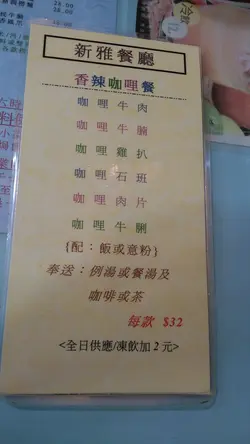 28.00
38.00
新雅餐廳
香辣咖哩餐
咖哩牛肉
咖哩牛腩
咖哩雞扒
咖哩石班
咖哩肉片
咖哩牛脷
{配：飯或意粉}
奉送：例湯或餐湯及
咖啡或茶
每款 $32
<全日供應/凍飲加 2 元>